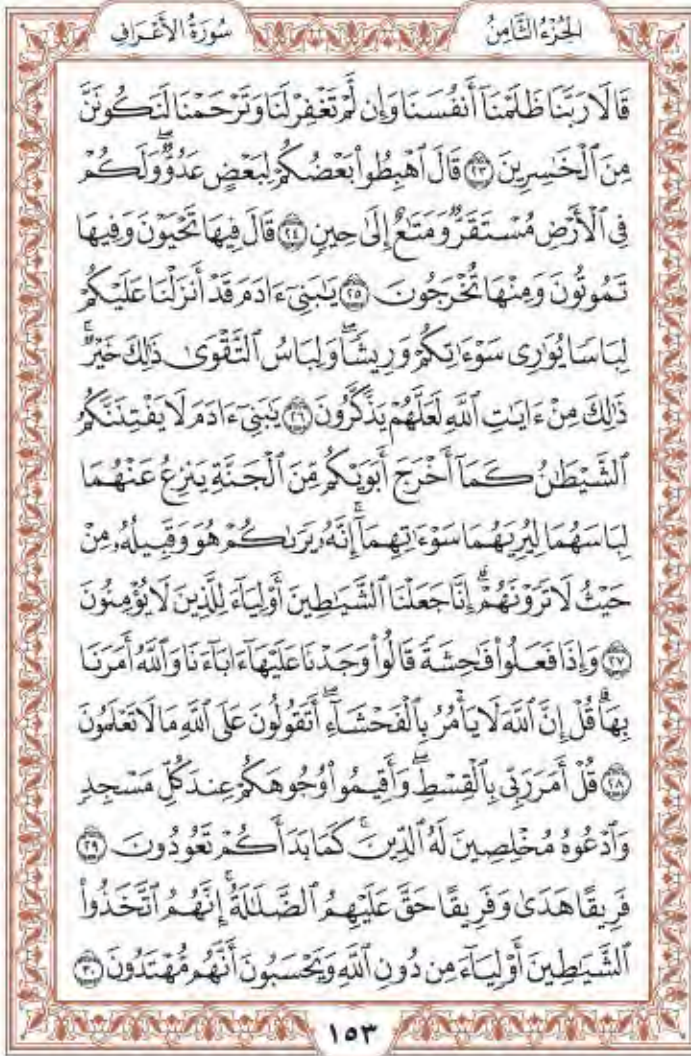 سُورَةُ الأَعْرَافِ
الجُزْءُ الثَّامِنُ
قَالَا رَبَّنَا ظَلَمْنَآ أَنفُسَنَا وَإِن لَّمْ تَغْفِرْ لَنَا وَتَرْحَمْنَا لَنَكُونَنَّ
مِنَ ٱلْخَٰسِرِينَ ٢٣ قَالَ ٱهْبِطُوا۟ بَعْضُكُمْ لِبَعْضٍ عَدُوٌّ ۖ وَلَكُمْ
فِى ٱلْأَرْضِ مُسْتَقَرٌّ وَمَتَٰعٌ إِلَىٰ حِينٍ ٢٤ قَالَ فِيهَا تَحْيَوْنَ وَفِيهَا
تَمُوتُونَ وَمِنْهَا تُخْرَجُونَ ٢٥ يَٰبَنِىٓ ءَادَمَ قَدْ أَنزَلْنَا عَلَيْكُمْ
لِبَاسًا يُوَٰرِى سَوْءَٰتِكُمْ وَرِيشًا ۖ وَلِبَاسُ ٱلتَّقْوَىٰ ذَٰلِكَ خَيْرٌ ۚ
ذَٰلِكَ مِنْ ءَايَٰتِ ٱللَّهِ لَعَلَّهُمْ يَذَّكَّرُونَ ٢٦ يَٰبَنِىٓ ءَادَمَ لَا يَفْتِنَنَّكُمُ
ٱلشَّيْطَٰنُ كَمَآ أَخْرَجَ أَبَوَيْكُم مِّنَ ٱلْجَنَّةِ يَنزِعُ عَنْهُمَا
لِبَاسَهُمَا لِيُرِيَهُمَا سَوْءَٰتِهِمَآ ۗ إِنَّهُۥ يَرَىٰكُمْ هُوَ وَقَبِيلُهُۥ مِنْ
حَيْثُ لَا تَرَوْنَهُمْ ۗ إِنَّا جَعَلْنَا ٱلشَّيَٰطِينَ أَوْلِيَآءَ لِلَّذِينَ لَا يُؤْمِنُونَ
٢٧ وَإِذَا فَعَلُوا۟ فَٰحِشَةً قَالُوا۟ وَجَدْنَا عَلَيْهَآ ءَابَآءَنَا وَٱللَّهُ أَمَرَنَا
بِهَا ۗ قُلْ إِنَّ ٱللَّهَ لَا يَأْمُرُ بِٱلْفَحْشَآءِ ۖ أَتَقُولُونَ عَلَى ٱللَّهِ مَا لَا تَعْلَمُونَ
٢٨ قُلْ أَمَرَ رَبِّى بِٱلْقِسْطِ ۖ وَأَقِيمُوا۟ وُجُوهَكُمْ عِندَ كُلِّ مَسْجِدٍ
وَٱدْعُوهُ مُخْلِصِينَ لَهُ ٱلدِّينَ ۚ كَمَا بَدَأَكُمْ تَعُودُونَ ٢٩
فَرِيقًا هَدَىٰ وَفَرِيقًا حَقَّ عَلَيْهِمُ ٱلضَّلَٰلَةُ ۗ إِنَّهُمُ ٱتَّخَذُوا۟
ٱلشَّيَٰطِينَ أَوْلِيَآءَ مِن دُونِ ٱللَّهِ وَيَحْسَبُونَ أَنَّهُم مُّهْتَدُونَ ٣٠
١٥٣